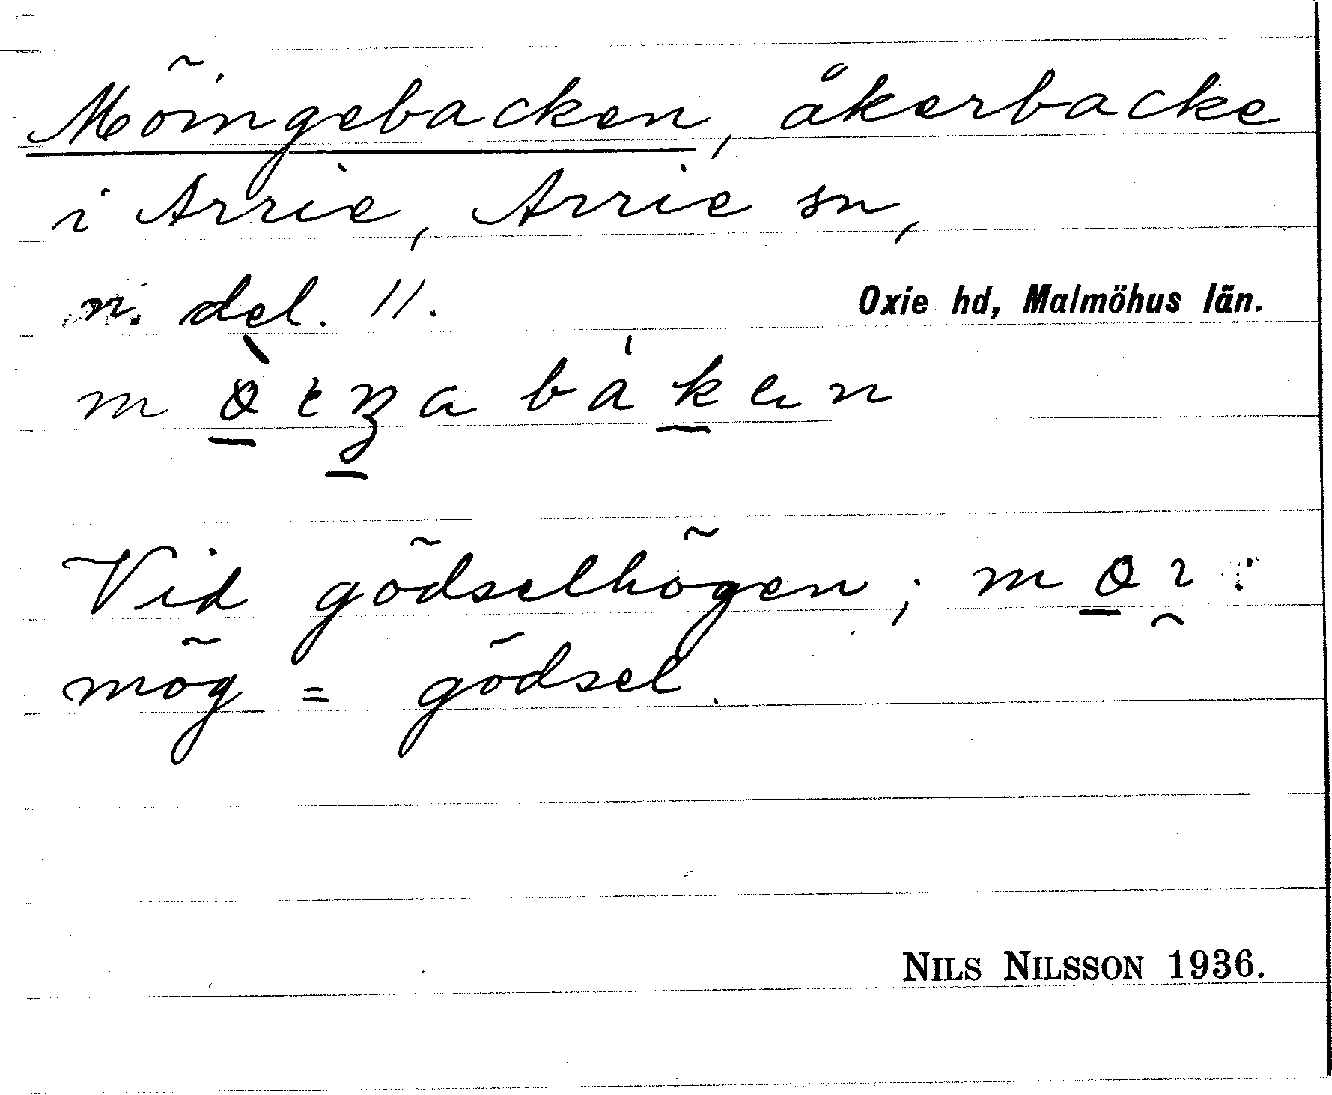 Möingebacken, åkerbacke
i Arrie, Arrie sn,
n. del. 11.
Oxie hd, Malmöhus län.
Vid gödselhögen;
mög = gödsel.
NILS NILSSON 1936.